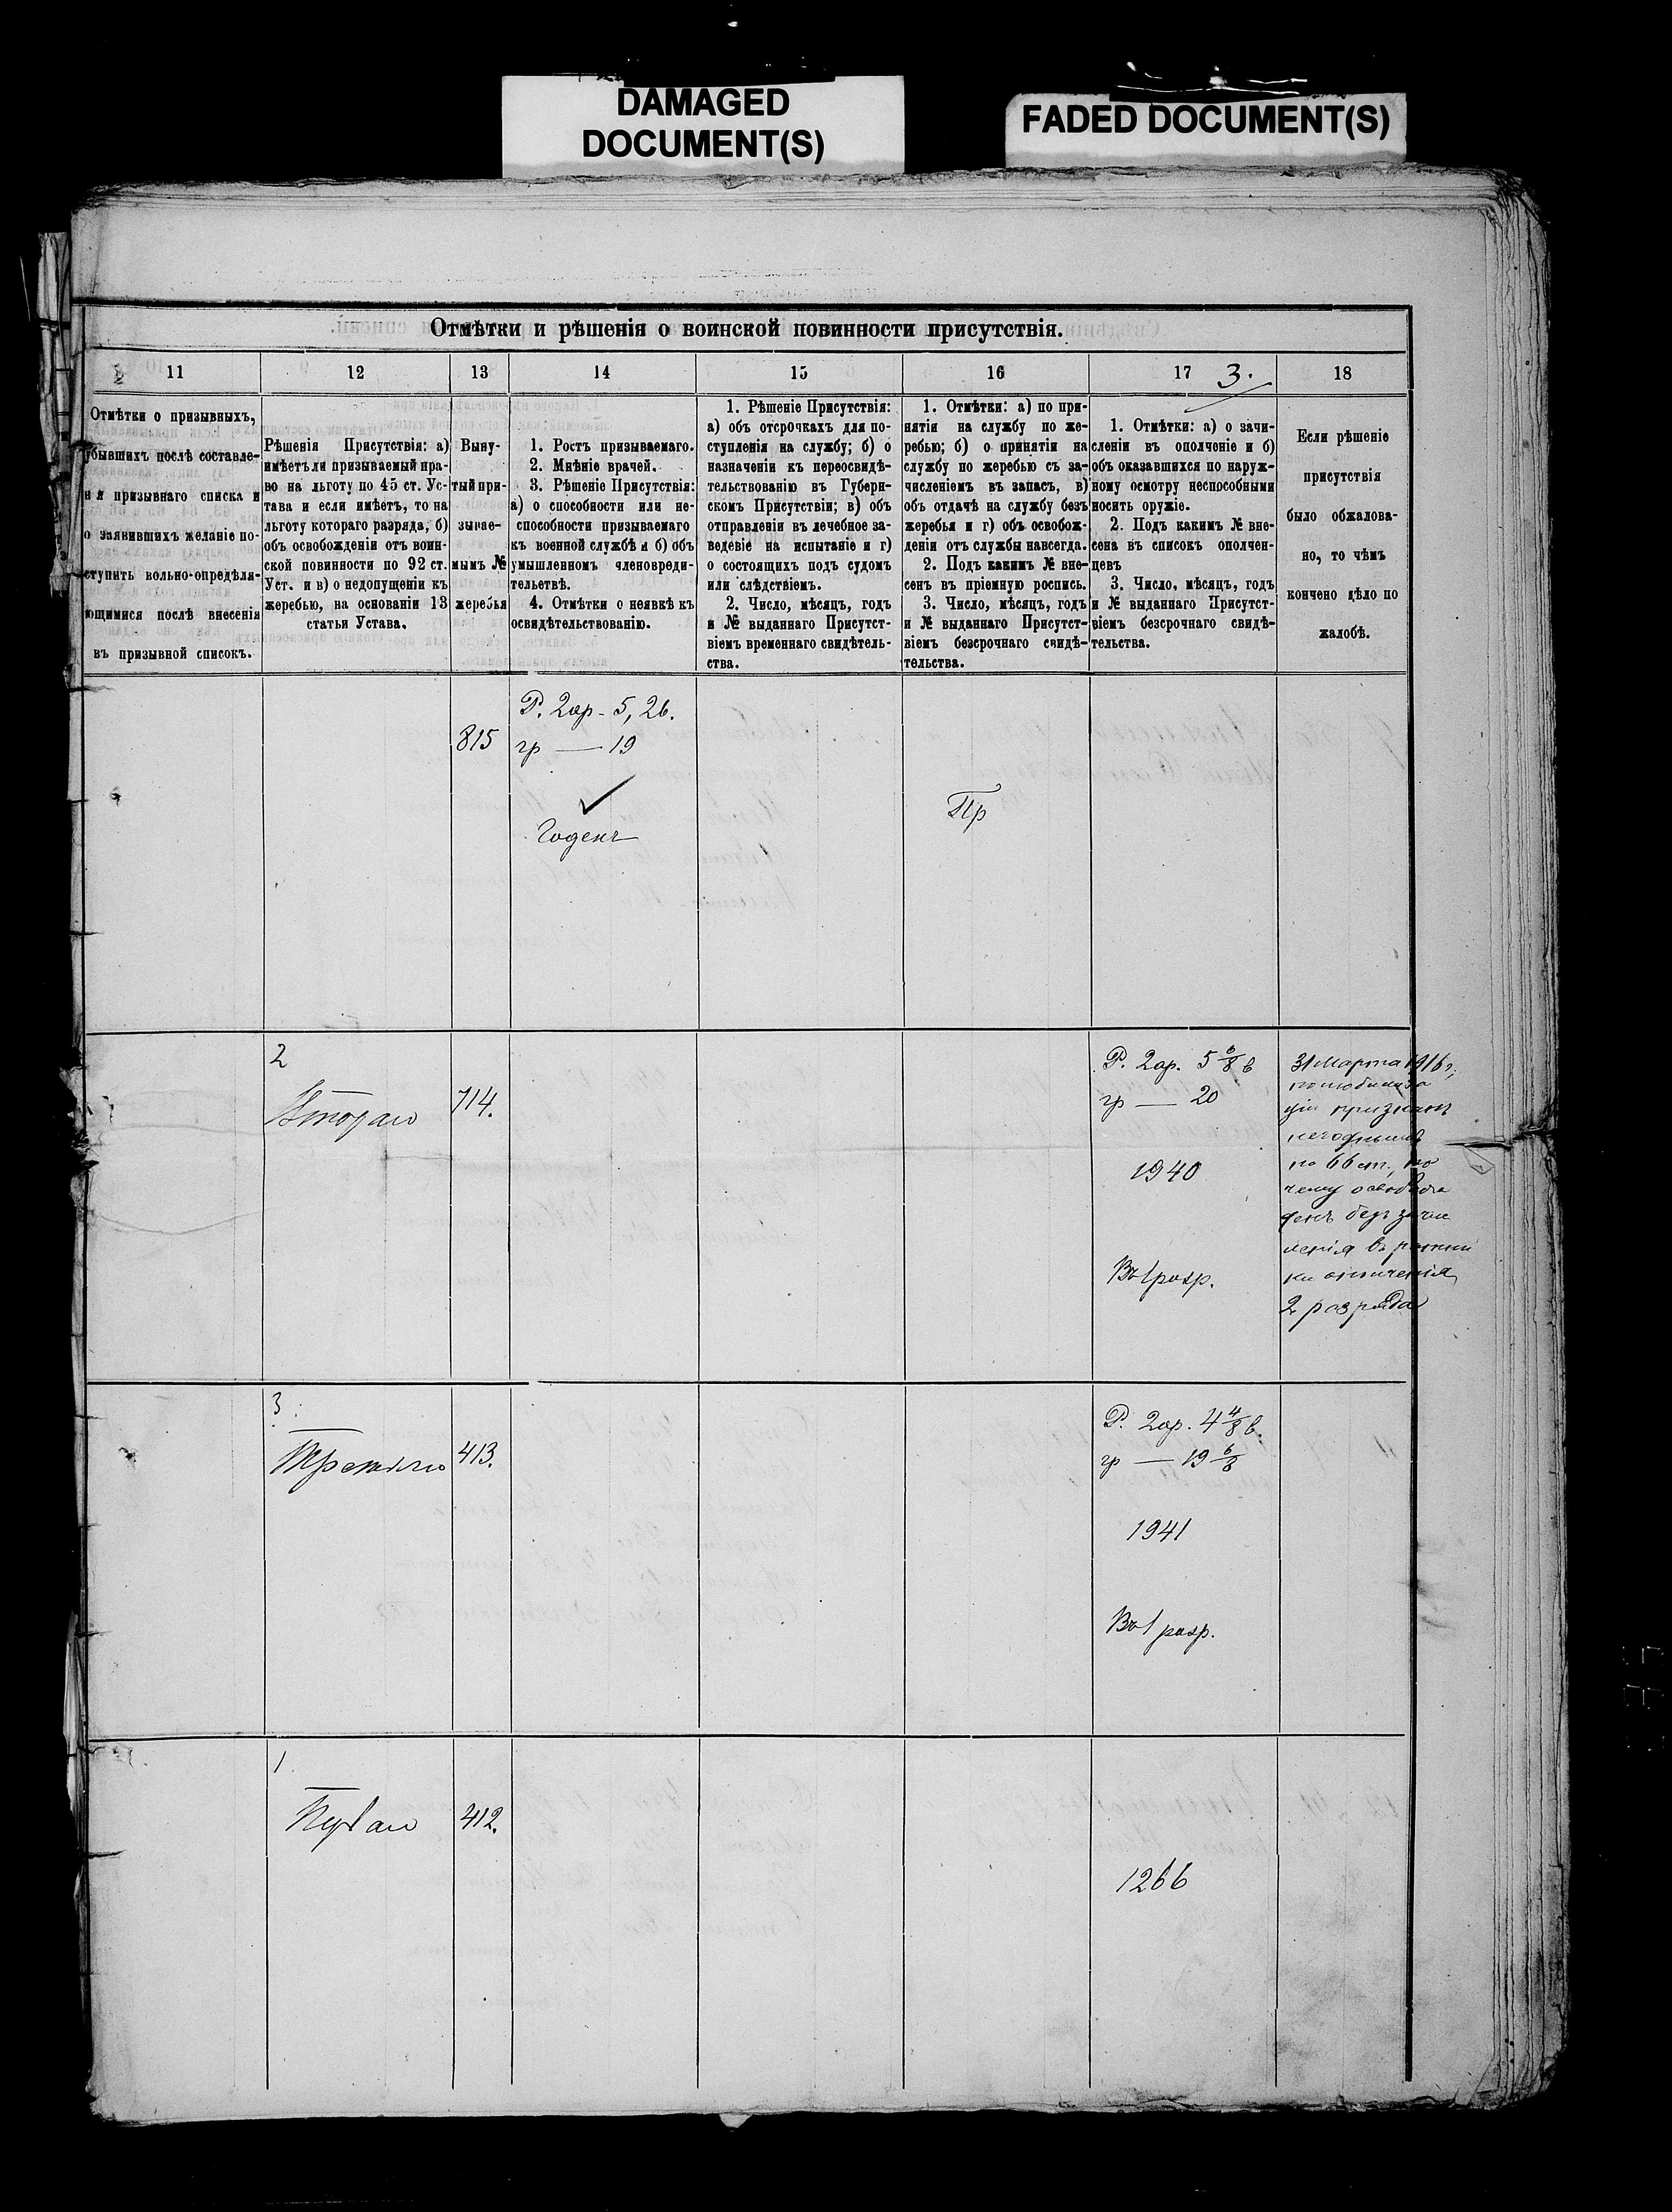 DAMAGED
DOCUMENT(S)
FADED DOCUMENT(S)
Отмѣтки и рѣшенія о воинской повинности присутствія.
11
12
13
14
15
16
17
3.
18
Отмѣтки о призывныхъ,
убывшихъ послѣ составле-
нія призывнаго списка и
о заявившихъ желаніе по-
ступить вольно-опредѣля-
ющимися послѣ внесенія
въ призывной списокъ.
Рѣшенія Присутствія: а)
имѣетъ ли призываемый пра-
во на льготу по 45 ст. Ус-
тава и если имѣетъ, то на
льготу котораго разряда, б)
объ освобожденіи отъ воин-
ской повинности по 92 ст.
Уст. и в) о недопущеніи къ
жеребью, на основаніи 13
статьи Устава.
Выну-
тый при-
зывае-
мымъ №
жеребья
1. Ростъ призываемаго.
2. Мнѣніе врачей.
3. Рѣшеніе Присутствія:
а) о способности или не-
способности призываемаго
къ военной службѣ и б) объ
умышленномъ членовреди-
тельетвѣ.
4. Отмѣтки о неявкѣ къ
освидѣтельствованію.
1. Рѣшеніе Присутствія:
а) объ отсрочкахъ для по-
ступленія на службу; б) о
назначеніи къ переосвидѣ-
тельствованію въ Губерн-
скомъ Присутствіи; в) объ
отправленіи въ лечебное за-
веденіе на испытаніе и г)
о состоящихъ подъ судомъ
или слѣдствіемъ.
2. Число, мѣсяцъ, годъ
и № выданнаго Присутст-
віемъ временнаго свидѣтель-
ства.
1. Отмѣтки: а) по при-
нятіи на службу по же-
ребью; б) о принятіи на
службу по жеребью съ за-
численіемъ въ запасъ, в)
объ отдачѣ на службу безъ
жеребья и г) объ освобож-
деніи отъ службы навсегда.
2. Подъ какимъ № вне-
сенъ въ пріемную роспись.
3. Число, мѣсяцъ, годъ
и № выданнаго Присутст-
віемъ безсрочнаго свидѣ-
тельства.
1. Отмѣтки: а) о зачи-
сленіи въ ополченіе и б)
объ оказавшихся по наруж-
ному осмотру неспособными
носить оружіе.
2. Подъ какимъ № вне-
сена въ списокъ ополчен-
цевъ
3. Число, мѣсяцъ, годъ
и № выданнаго Присутст-
віемъ безсрочнаго свидѣ-
тельства.
Если рѣшеніе
присутствія
было обжалова-
но, то чѣмъ
кончено дѣло по
жалобѣ.
815
Р. 2ар - 5, 2в.
гр — 19
Годенъ
Пр
2
Втораго
714.
Р. 2ар. 5 6/8 в
гр — 20
1940
Въ 1 разр.
31 Марта 1916 г.
по мобилиза
ціи признанъ
негоднымъ
по 66 ст., по
чему освобож
денъ безъ зачис
ленія въ ратни
ки ополченія
2 разряда
3
Третьяго
413.
Р. 2ар. 4 4/8 в.
гр — 19 6/8
1941
Въ 1 разр.
1
Перваго
412.
1266